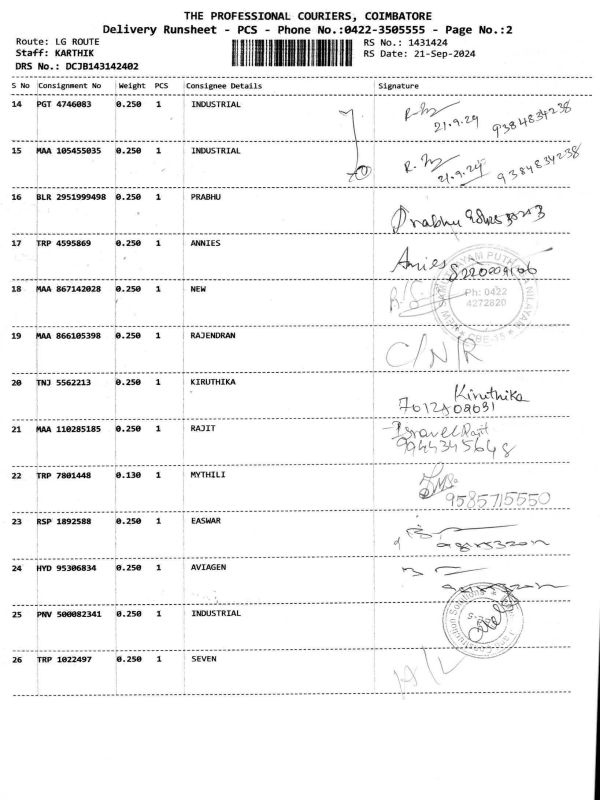 THE PROFESSIONAL COURIERS, COIMBATORE
Delivery Runsheet - PCS - Phone No.:0422-3505555 - Page No.:2
Route: LG ROUTE RS No.: 1431424
Staff: KARTHIK RS Date: 21-Sep-2024
DRS No.: DCJB143142402
S No Consignment No Weight PCS Consignee Details Signature
14 PGT 4746083 0.250 1 INDUSTRIAL
21.9.24 9384834238
15 MAA 105455035 0.250 1 INDUSTRIAL
21.9.24 9384834238
16 BLR 2951999498 0.250 1 PRABHU
Prabhu
17 TRP 4595869 0.250 1 ANNIES
Annies
18 MAA 867142028 0.250 1 NEW
Ph: 0422
4272820
CBE-15
19 MAA 866105398 0.250 1 RAJENDRAN
C/N/R
20 TNJ 5562213 0.250 1 KIRUTHIKA
Kiruthika
21 MAA 110285185 0.250 1 RAJIT
9944345648
22 TRP 7801448 0.130 1 MYTHILI
9585715550
23 RSP 1892588 0.250 1 EASWAR
24 HYD 95306834 0.250 1 AVIAGEN
25 PNV 500082341 0.250 1 INDUSTRIAL
Construction Solutions
26 TRP 1022497 0.250 1 SEVEN